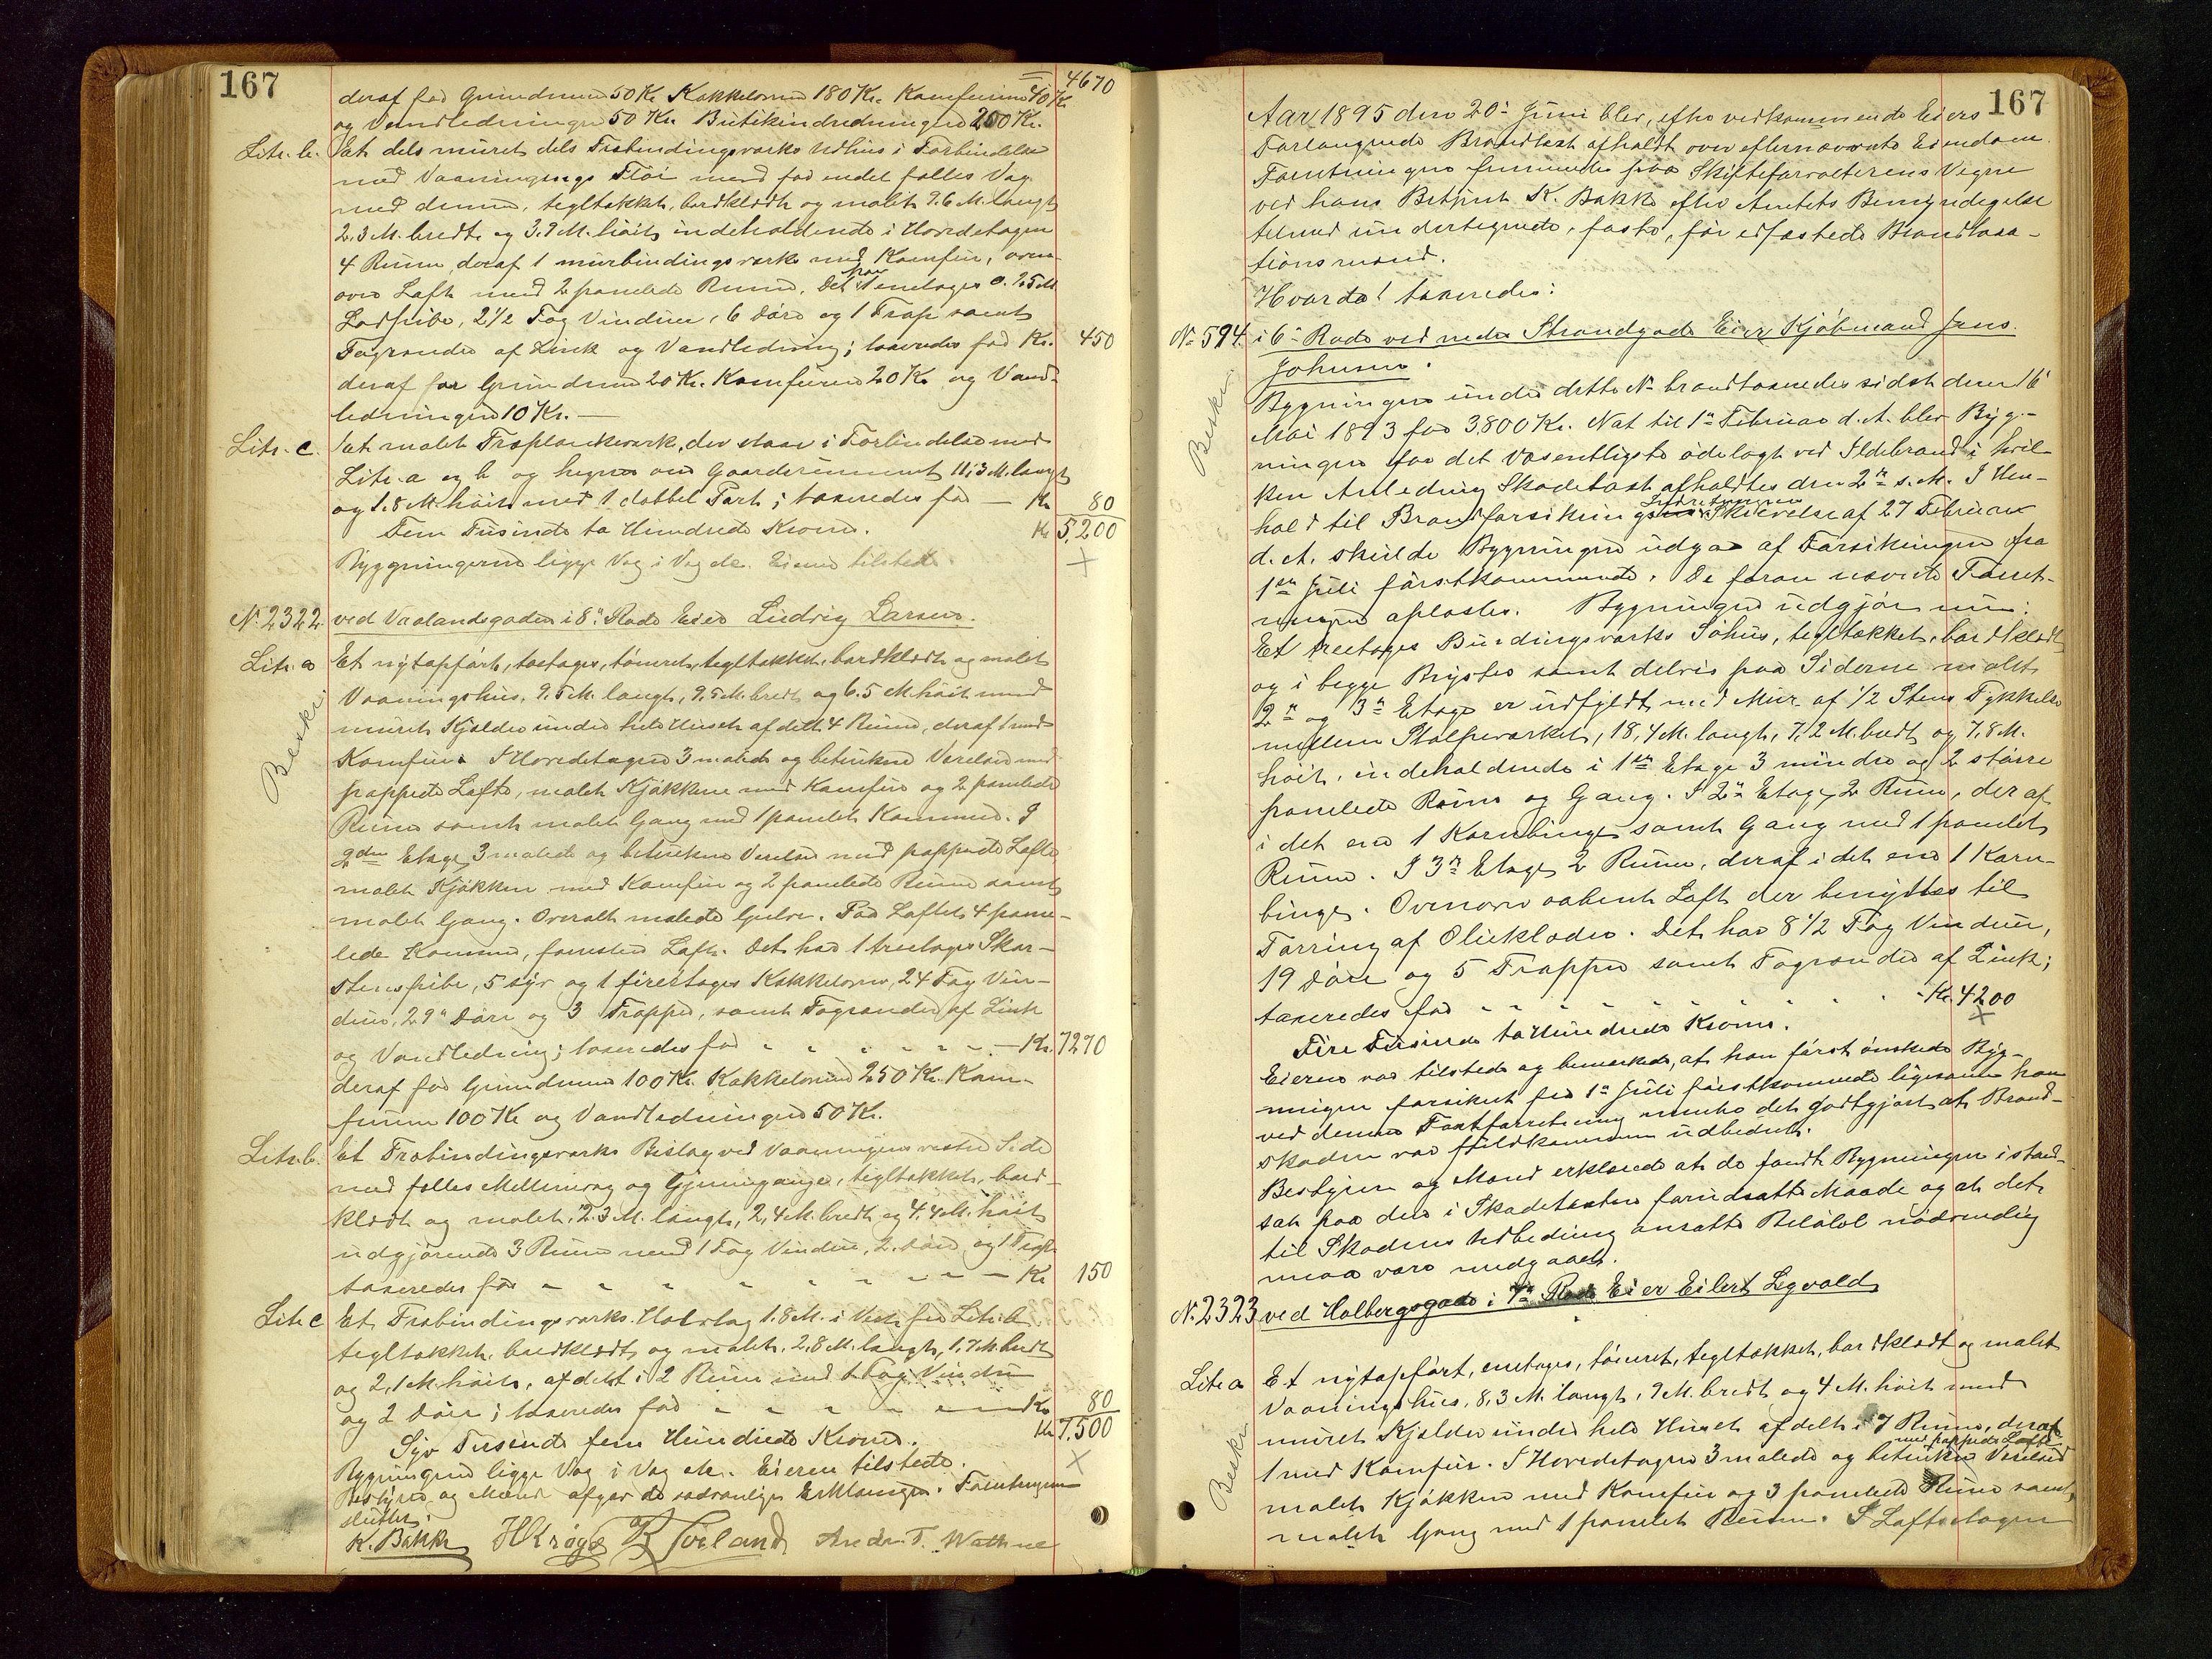 167
4670
deraf for Grundmur 50 Kr. Kakkelovne 180 Kr. Komfurene 40 Kr.
og Vandledningen 50 Kr. Butikindredningen 200 Kr.
Litr. b. Et dels muret dels Træbindingsværks Udhus i Forbindelse
med Vaaningens Fløi med for endel fælles Væg
med denne, tegltækket, bordklædt og malet 9.6 M. langt
2,3 M. bredt og 3.9 M. høit, indeholdende i Hovedetagen
4 Rum, deraf 1 murbindingsværks med Komfur, oven-
over Loft med 2 panelede Rum. Det har 1 enetages
2 1/2 Fag Vinduer, 6 Døre og 1 Trap samt
Tagrender af Zink og Vandledning; taxeredes for Kr. 450
deraf for Grundmur 20 Kr. Komfuren 20 Kr. og Vand-
ledningen 10 Kr. —
Litr. c. Et malet Træplankeværk, der staar i Forbindelse med
Litr. a og b og hegner om Gaardsrummet 11,3 M. langt
og 1.8 M. høit med 1 dobbel Port; taxeredes for — Kr. 80
Fem Tusinde to Hundrede Kroner. Kr. 5,200
Bygningerne ligge Væg i Væg etc. Eieren tilstede.
N. 2322 ved Vaalandsgaden i 8de Rode Eier Ludvig Larsen.
Litr. a Et nytopført, toetages, tømret, tegltækket, bordklædt og malet
Vaaningshus, 9.5 M. langt, 9,5 M. bredt og 6.5 M. høit med
muret Kjælder under hele Huset afdelt 4 Rum, deraf 1 med
Komfur. I Hovedetagen 3 malede og betrukne Værelser med
pappede Lofte, malet Kjøkken med Komfur og 2 panelede
Rum samt malet Gang med 1 panelet Kammer. I
2den Etage 3 malede og betrukne Værelser med pappede Lofte
malet Kjøkken med Komfur og 2 panelede Rum samt
malet Gang. Overalt malede Gulve. Paa Loftet 4 pane-
lede Kammer, forresten Loft. Det har 1 treetages Skor-
stenspibe, 5 syv og 1 fireetages Kakkelovne, 24 Fag Vin-
duer, 29 Døre og 3 Trapper, samt Tagrender af Zink
og Vandledning; taxeredes for - - - - - - Kr. 7270
deraf for Grundmur 100 Kr. Kakkelovne 250 Kr. Kom-
furene 100 Kr. og Vandledningen 50 Kr.
Litr. b. Et Træbindingsværks Bislag ved Vaaningens vestre Side
med fælles Mellemvæg og Gjennemgange, tegltækket, bord-
klædt og malet, 2.3 M. langt, 2,4 M. bredt og 4.4 M. høit
udgjørende 3 Rum med 1 Fag Vindue, 2 Døre og 1 Trap
taxeredes for - - - - - - - - - Kr. 150
Litr. c Et Træbindingsværks Halvtag 1.8 M. i Vest for Litr. b
tegltækket, bordklædt og malet, 2,8 M. langt, 1.7 M. bredt
og 2,1 M. høit, afdelt i 2 Rum med 1 Fag Vindue
og 2 Døre; taxeredes for - - - - - Kr. 80
Syv Tusinde fem Hundrede Kroner. Kr. 7,500
Bygningerne ligge Væg i Væg etc. Eieren tilstede.
Bestyrer og Mænd afgav de sædvanlige Erklæringer. Forretningen
sluttet.
K. Bakke HKrøger Andr. T. Wathne
Beskr.
167
Aar 1895 den 20de Juni blev, efter vedkommende Eiers
Forlangende Brandtaxt afholdt over efternævnte Eiendom.
Forretningen fremmedes paa Skifteforvalterens Vegne
ved hans Betjent K. Bakke efter Amtets Bemyndigelse
tilmed undertegnede, faste, før edfæstede Brandtaxa-
tionsmænd.
Hvorda! taxeredes:
N. 594. i 6te Rode ved nedre Strandgade Eier Kjøbmand Jens
Johnsen.
Bygningen under dette N. brandtaxeredes sidst den 16
Mai 1893 for 3800 Kr. Nat til 1ste Februar d.A. blev Byg-
ningen for det væsentligste ødelagt ved Ildebrand i hvil-
ken Anledning Skadetaxt afholdtes den 2den s.M. I Hen-
hold til Brandforsikrings Indretningens Skrivelse af 27 Februar
d. A. skulde Bygningen udgaa af Forsikringen fra
1ste Juli førstkommende. De foran nævnte Forret-
ninger oplæstes. Bygningen udgjør nu:
Et treetages Bindingsværks Søhus, tegltækket, bordklædt
og i begge Bryster samt delvis paa Siderne malet
2den og 3die Etage er udfyldt med Mur af 1/2 Stens Tykkelse
mellem Stolpeværket, 18,4 M. langt, 7,2 M. bredt og 7,8 M.
høit, indeholdende i 1ste Etage 3 mindre og 2 større
panelede Rum og Gang. I 2den Etage 2 Rum, deraf
i det ene 1 Kornbinge samt Gang med 1 panelet
Rum. I 3die Etage 2 Rum, deraf i det ene 1 Korn-
binge. Ovenover aabent Loft der benyttes til
Tørring af Olieklæder. Det har 8 1/2 Fag Vinduer,
19 Døre og 5 Trapper samt Tagrender af Zink;
taxeredes for - - - - - - - - Kr. 4200
Fire Tusinde to Hundrede Kroner.
Eieren var tilstede og bemærkede, at han først ønskede Byg-
ningen forsikret fra 1ste Juli førstkommende ligesom han
ved denne Taxtforretning mente det godtgjort at Brand-
skaden var fuldkommen udbedret.
Bestyrer og Mænd erklærede at de fandt Bygningen istand-
sat paa den i Skadetaxten forudsatte Maade og at det
til Skadens Udbedring ansatte Beløb nødvendig
maa være medgaaet.
N. 2323 ved Holbergsgade i 7de Rode Eier Eilert Egvald
Litr. a Et nytopført, enetages, tømret, tegltækket, bordklædt og malet
Vaaningshus, 8,3 M. langt, 9 M. bredt og 4 M. høit med
muret Kjælder under hele Huset afdelt i 7 Rum, deraf
1 med Komfur. I Hovedetagen 3 malede og betrukne Værelser med pappede Lofte
malet Kjøkken med Komfur og 3 panelede Rum samt
malet Gang med 1 panelet Rum. I Loftsetagen
Beskr.
Beskr.